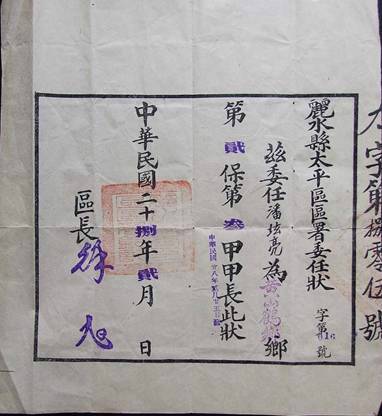 字第捌零伍號
麗水縣太平區區署委任狀
字第 號
茲委任潘亮為黃山鶴鄉
第貳保第叁甲甲長此狀
中華民國廿八年
中華民國二十捌年貳月 日
區長徐